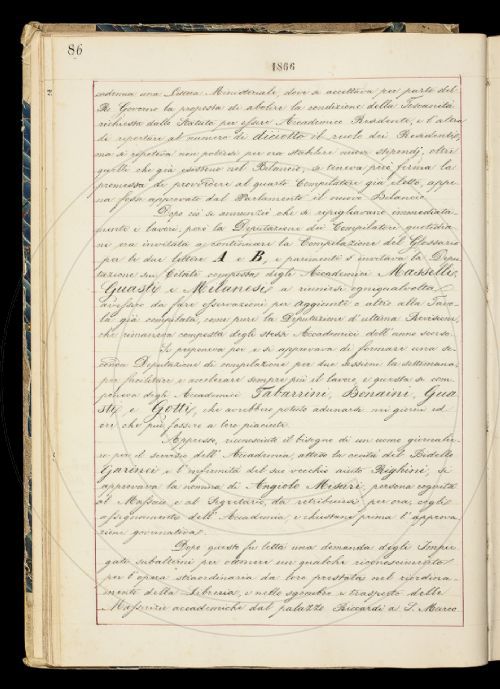 86
1866
cedenna una Lettera Ministeriale, dove si accettava per parte del
R. Governo la proposta di abolire la condizione della Toscanità
richiesta dallo Statuto per essere Accademico Residente, e l'altra
di riportare al numero di diciotto il ruolo dei Residenti,
ma si ripeteva non potersi per ora stabilire nuovi stipendj, oltre
quelli che già esistono nel Bilancio, si teneva però ferma la
promessa di provvedere al quarto Compilatore già eletto, appe-
na fosse approvato dal Parlamento il nuovo Bilancio.
Dopo ciò si annunziò che si ripigliavano immediata-
mente i lavori, però la Deputazione dei Compilatori quotidia-
ni era invitata a continuare la Compilazione del Glossario
per le due lettere A e B, e parimente s'invitava la Depu-
tazione sui Citati composta degli Accademici Masselli,
Guasti e Milanesi a riunirsi ogniqualvolta
avessero da fare osservazioni per aggiunte o altro alla Tavo-
la già compilata, come pure la Deputazione di interna Revisione
che rimaneva composta degli stessi Accademici dell'anno scorso.
Si proponeva poi e si approvava di formare una se-
conda Deputazione di compilazione per due sessioni la settimana,
per facilitare e accelerare sempre più il lavoro, e questa si com-
poneva degli Accademici Tabarrini, Bonaini, Gua-
sti e Gotti, che avrebbero potuto adunarsi nei giorni ed
ore che più fossero a loro piaciute.
Appresso, riconosciuto il bisogno di un uomo giornalie-
ro per il servizio dell'Accademia, attesa la cecità del Bidello
Garinei e l'infermità del suo vecchio aiuto Righini, si
approvava la nomina di Angiolo Misuri, persona cognita
al Massaio, e al Segretario, da retribuirsi per ora, cogli
assegnamenti dell'Accademia, e chiestane prima l'approva-
zione governativa.
Dopo questo fu letta una domanda degli Impie-
gati subalterni per ottenere un qualche riconoscimento
per l'opera straordinaria da loro prestata nel riordina-
mento della Libreria, e nello sgombro e trasporto delle
Masserizie accademiche dal palazzo Riccardi a S. Marco